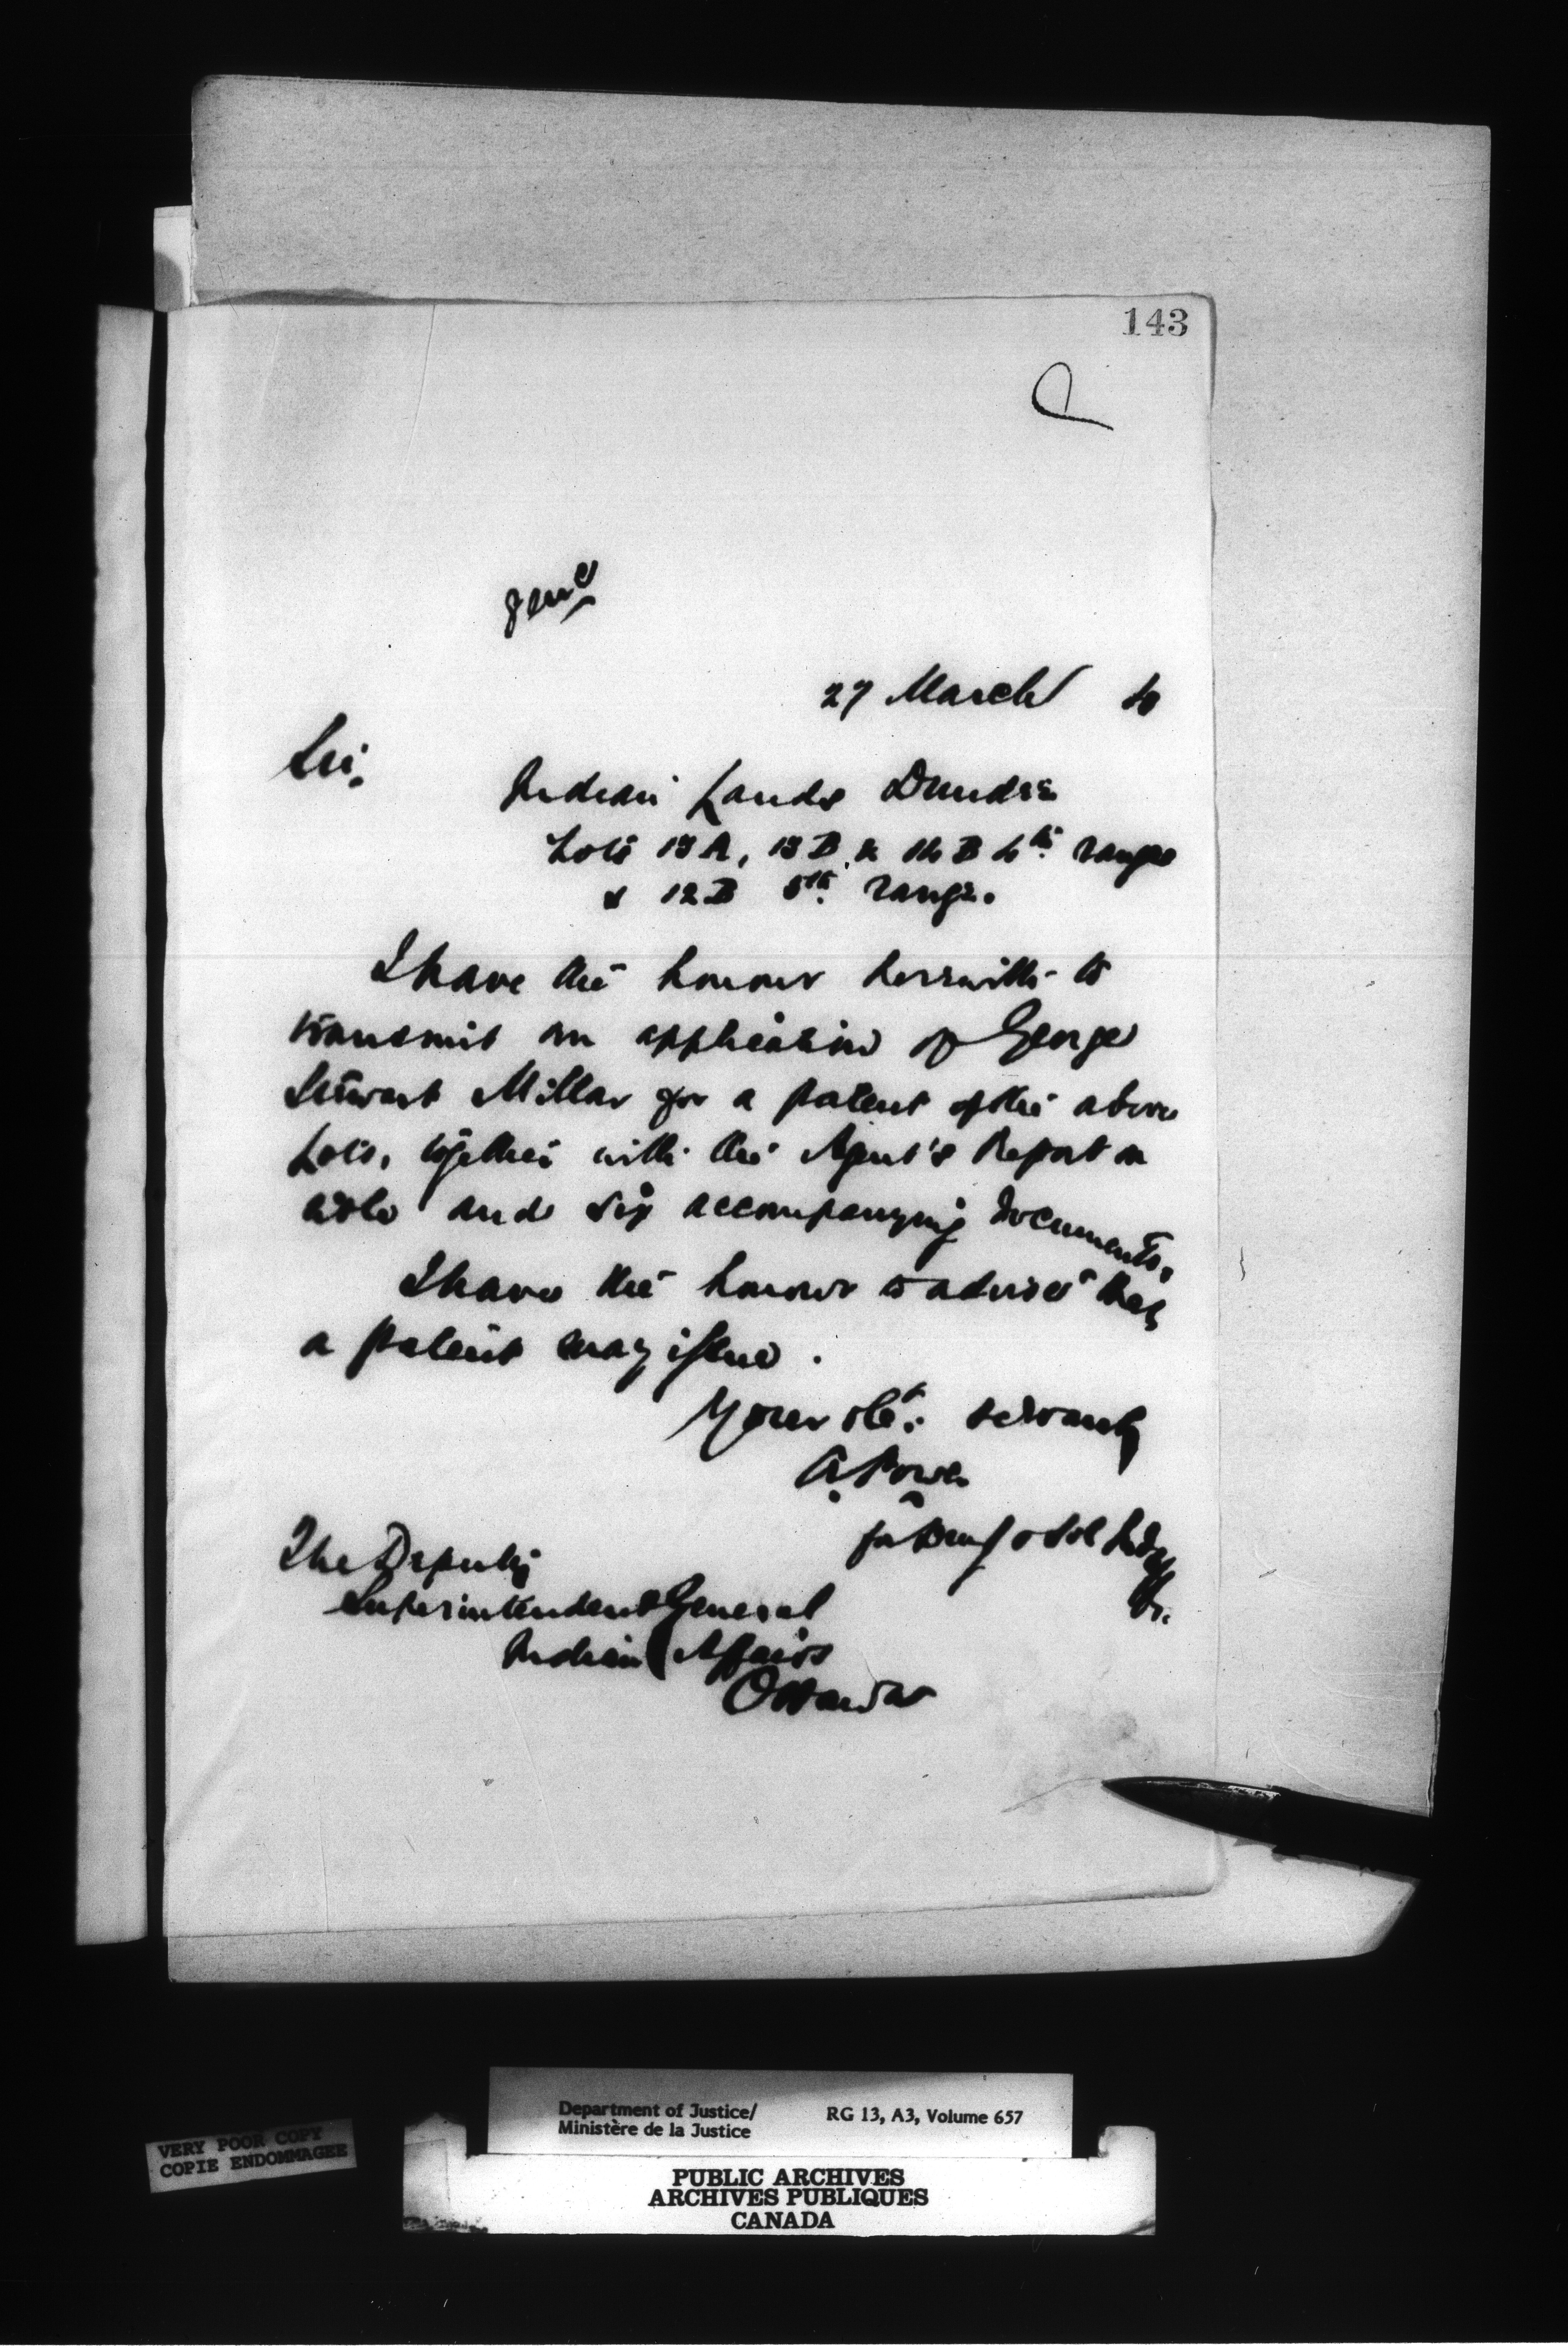 143
27 March
Sir,
Indian Lands Dundee
Lots 13A, 13B & 14B 4th range
& 12B 5th range.
I have the honour herewith to
transmit an application of George
Stewart Millar for a patent of the above
Lots, together with the Agent's Report on
and six accompanying documents,
I have the honour to advise that
a patent may issue.
Your obt. servant
A. Power
for
The Deputy
Superintendent General
Indian Affairs
Ottawa
Department of Justice/
Ministère de la Justice
RG 13, A3, Volume 657
VERY POOR COPY
COPIE ENDOMMAGEE
PUBLIC ARCHIVES
ARCHIVES PUBLIQUES
CANADA